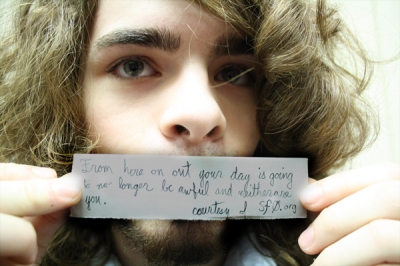 From here on out your day is going
to no longer be awful and neither are
you.
courtesy of SfØ.org